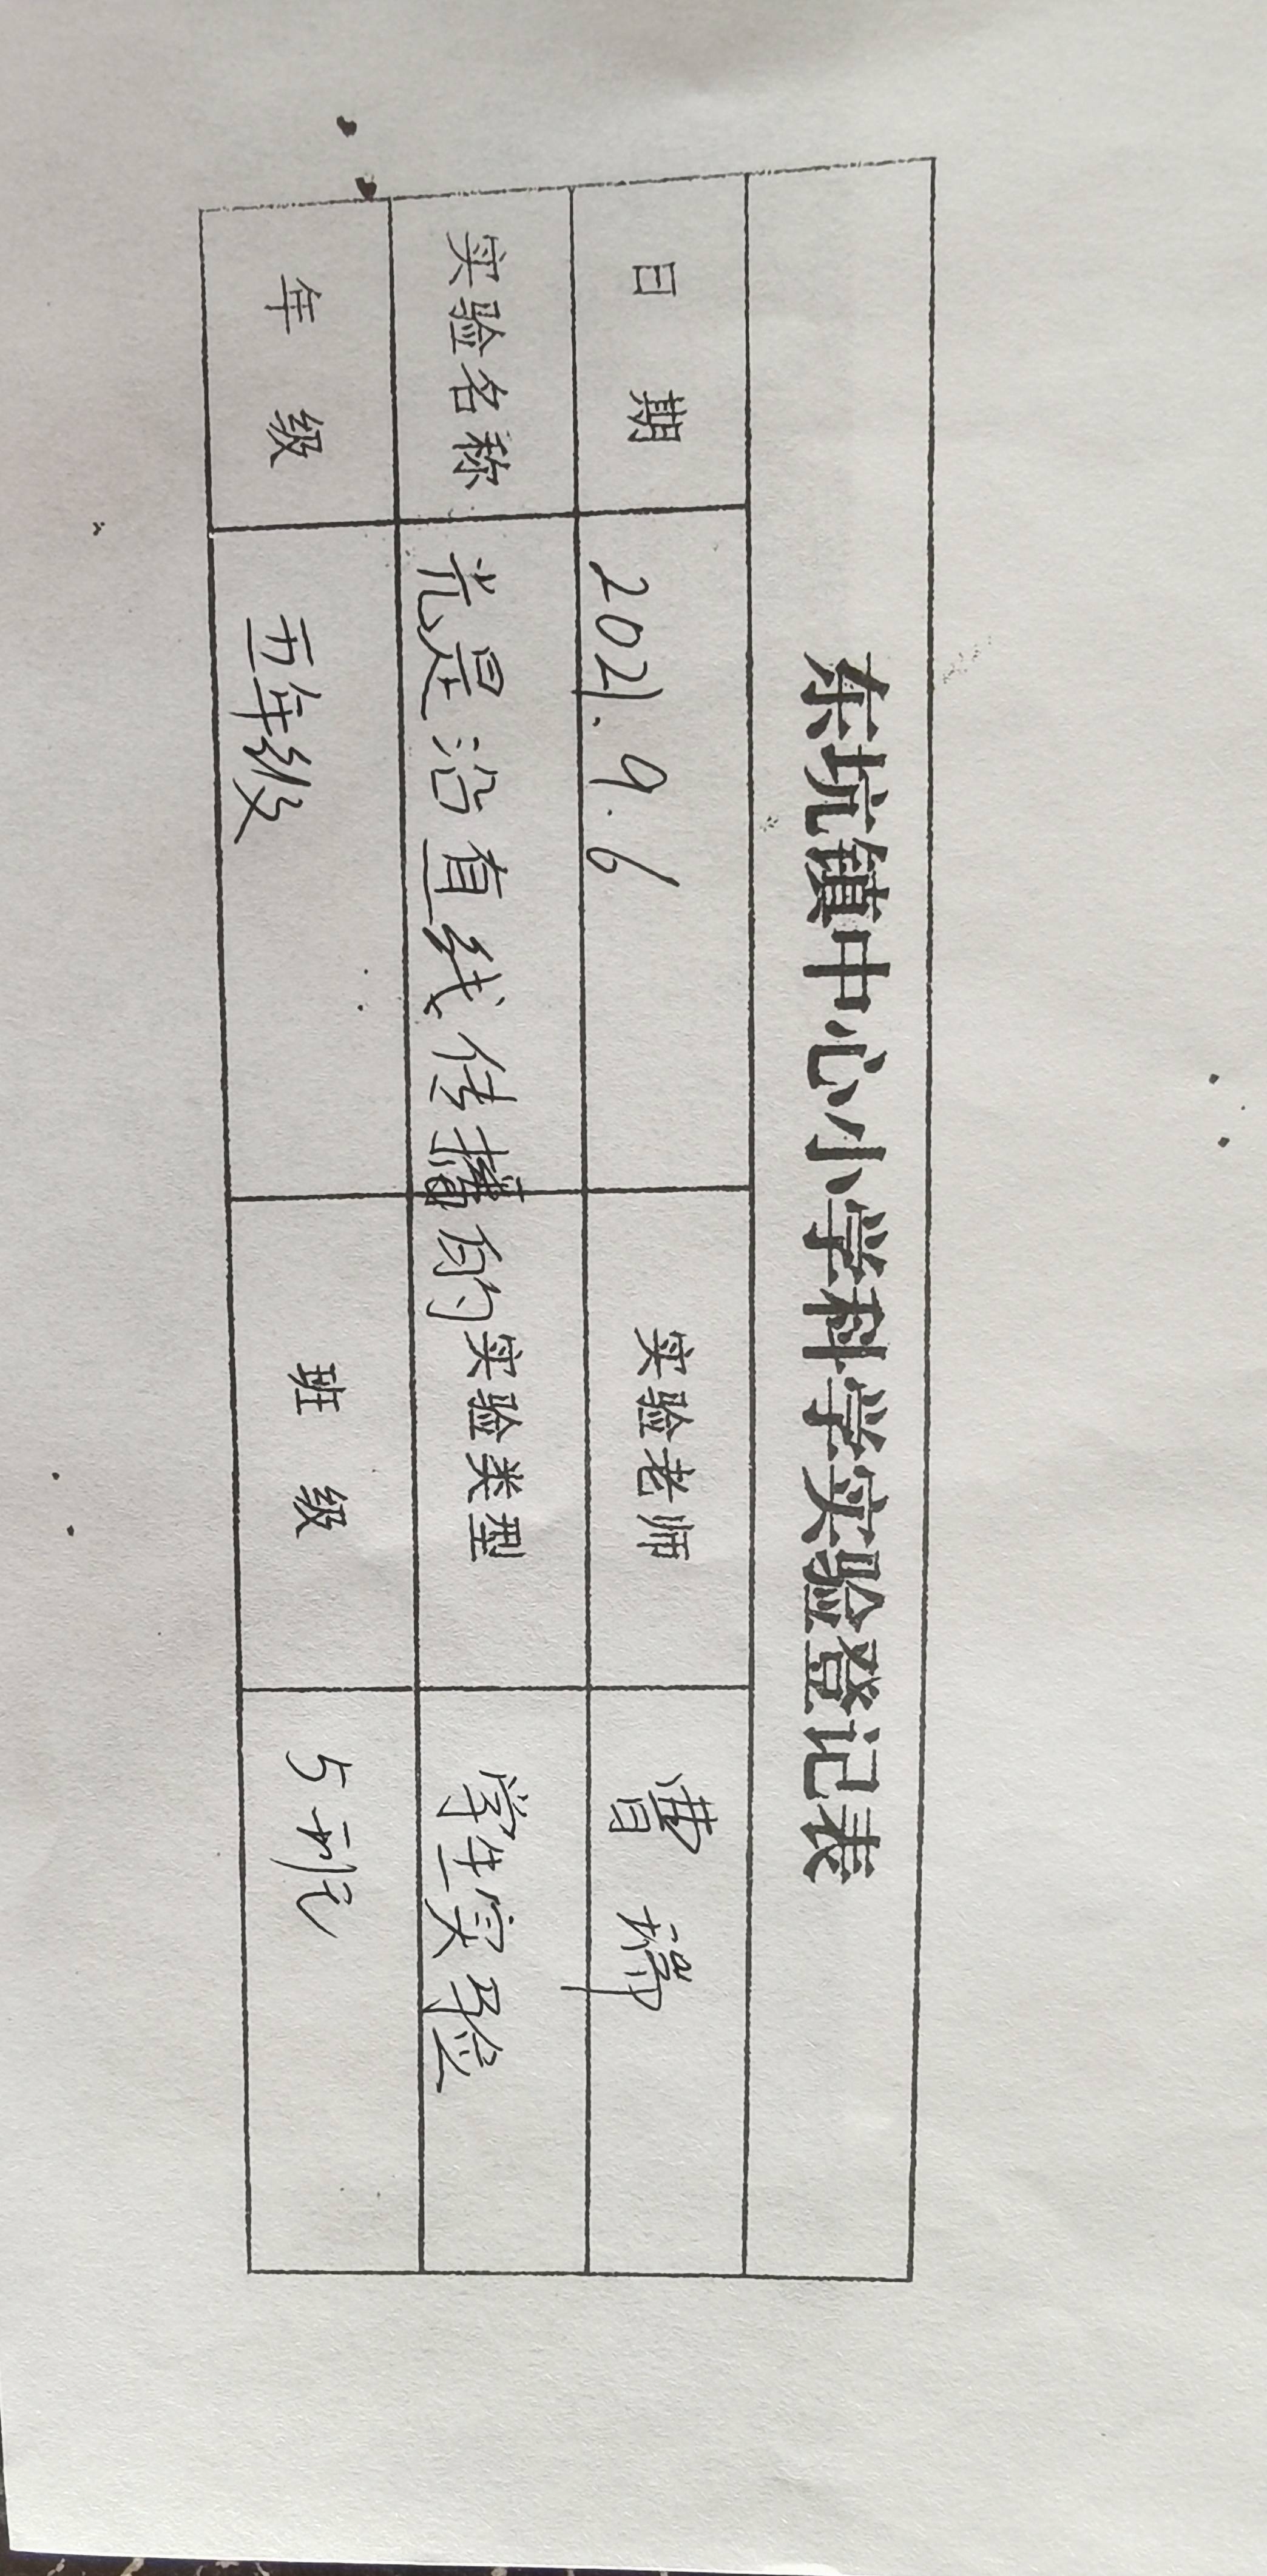 东坑镇中心小学科学实验登记表
日 期 2021.9.6 实验老师 曹
实验名称 光是沿直线传播的 实验类型 学生实验
年 级 五年级 班 级